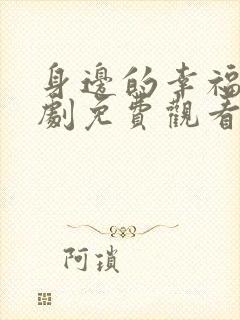 身邊的幸福
劇免費觀看
阿瑣